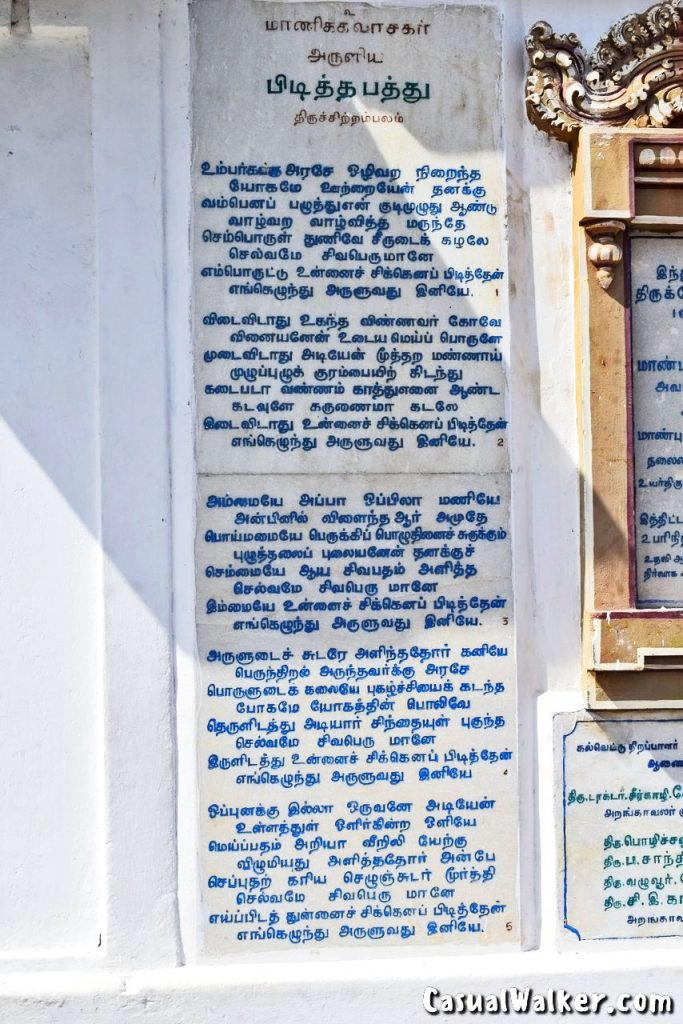 மாணிக்கவாசகர்
அருளிய
பிடித்தபத்து
திருச்சிற்றம்பலம்
உம்பர்கட்கு அரசே ஒழிவற நிறைந்த
யோகமே ஊற்றையேன் தனக்கு
வம்பெனப் பழுத்துஎன் குடிமுழுது ஆண்டு
வாழ்வற வாழ்வித்த மருந்தே
செம்பொருள் துணிவே சீருடைக் கழலே
செல்வமே சிவபெருமானே
எம்பொருட்டு உன்னைச் சிக்கெனப் பிடித்தேன்
எங்கெழுந்து அருளுவது இனியே. 1
விடைவிடாது உகந்த விண்ணவர் கோவே
வினையனேன் உடைய மெய்ப் பொருளே
முடைவிடாது அடியேன் மூத்தற மண்ணாய்
முழுப்புழுக் குரம்பையிற் கிடந்து
கடைபடா வண்ணம் காத்துஎனை ஆண்ட
கடவுளே கருணைமா கடலே
இடைவிடாது உன்னைச் சிக்கெனப் பிடித்தேன்
எங்கெழுந்து அருளுவது இனியே. 2
அம்மையே அப்பா ஒப்பிலா மணியே
அன்பினில் விளைந்த ஆர் அமுதே
பொய்மமையே பெருக்கிப் பொழுதினைச் சுருக்கும்
புழுத்தலைப் புலையனேன் தனக்குச்
செம்மையே ஆய சிவபதம் அளித்த
செல்வமே சிவபெரு மானே
இம்மையே உன்னைச் சிக்கெனப் பிடித்தேன்
எங்கெழுந்து அருளுவது இனியே. 3
அருளுடைச் சுடரே அளிந்ததோர் கனியே
பெருந்திறல் அருந்தவர்க்கு அரசே
பொருளுடைக் கலையே புகழ்ச்சியைக் கடந்த
போகமே யோகத்தின் பொலிவே
தெருளிடத்து அடியார் சிந்தையுள் புகுந்த
செல்வமே சிவபெரு மானே
இருளிடத்து உன்னைச் சிக்கெனப் பிடித்தேன்
எங்கெழுந்து அருளுவது இனியே 4
ஒப்புனக்கு இல்லா ஒருவனே அடியேன்
உள்ளத்துள் ஒளிர்கின்ற ஒளியே
மெய்ப்பதம் அறியா வீறிலி யேற்கு
விழுமியது அளித்ததோர் அன்பே
செப்புதற் கரிய செழுஞ்சுடர் மூர்த்தி
செல்வமே சிவபெரு மானே
எய்ப்பிடத் துன்னைச் சிக்கெனப் பிடித்தேன்
எங்கெழுந்து அருளுவது இனியே. 5
இந்த
திருக்கே
மாண்பு
அவ
மாண்பு
தலைை
உயர்திரு
இத்திட்ட
உபரிநி
உதவி ஆ
நிர்வாக
கல்வெட்டு திறப்பாளர்
ஆணை
திரு.டாக்டர்.சீர்காழி
அறங்காவலர் கு
திரு.பொழிச்ச
திரு.ப.சாந்தி
திரு.வழுவூர்
திரு.சி.இ.கா
அறங்கா
CasualWalker.com